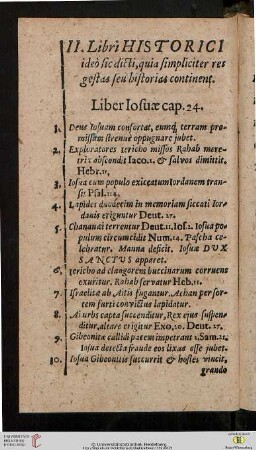 II. Libri HISTORICI
ideò sic dicti, quia simpliciter res
gestas seu historias continent.
Liber Iosuæ cap. 24.
1. Deus Iosuam confortat, eumq́; terram pro-
missam strenuè oppugnare jubet.
2. Exploratores Iericho missos Rahab mere-
trix abscondit Iaco. 2. & salvos dimittit.
Hebr. 11.
3. Iosua cum populo exiccatum Iordanem tran-
sit Psal. 114.
4. Lapides duodecim in memoriam siccati Ior-
danis eriguntur Deut. 27.
5. Chananæi terrentur Deut. 11. Ios. 2. Iosua po-
pulum circumcidit Num. 14. Pascha ce-
lebratur. Manna deficit. Iosuæ DUX
SANCTUS apparet.
6. Iericho ad clangorem buccinarum corruens
exuritur. Rahab servatur Heb. 11.
7. Israelitæ ab Aitis fugantur. Achan per sor-
tem furti convictus lapidatur.
8. Ai urbs capta succenditur, Rex ejus suspen-
ditur, altare erigitur Exo. 20. Deut. 27.
9. Gibeonitæ callidi pacem impetrant 2. Sam. 21.
Iosua detecta fraude eos lixas esse jubet.
10. Iosua Gibeonitis succurrit & hostes vincit,
grando
Universitätsbibliothek Heidelberg